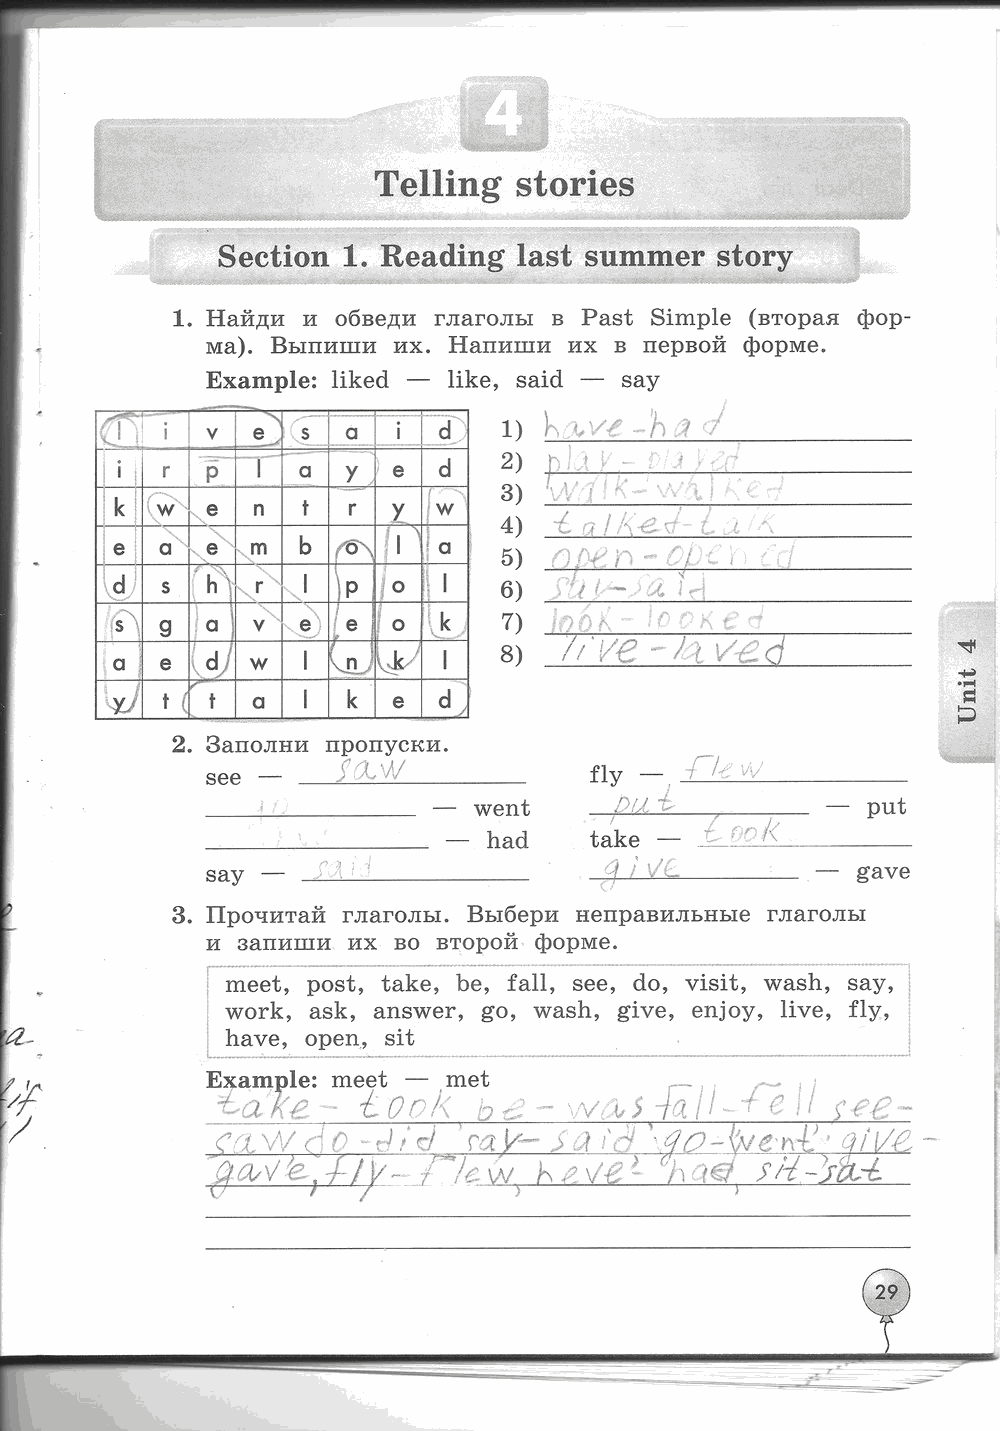 4
Telling stories
Section 1. Reading last summer story
1. Найди и обведи глаголы в Past Simple (вторая фор-
ма). Выпиши их. Напиши их в первой форме.
Example: liked — like, said — say
l i v e s a i d
i r p l a y e d
k w e n t r y w
e a e m b o l a
d s h r l p o l
s g a v e e o k
a e d w l n k l
y t t a l k e d
1) have-had
2) play-played
3) walk-walked
4) talked-talk
5) open-opened
6) say-said
7) look-looked
8) live-laved
2. Заполни пропуски.
see — saw
fly — flew
go — went
put — put
— had
take — took
say — said
give — gave
3. Прочитай глаголы. Выбери неправильные глаголы
и запиши их во второй форме.
meet, post, take, be, fall, see, do, visit, wash, say,
work, ask, answer, go, wash, give, enjoy, live, fly,
have, open, sit
Example: meet — met
take - took be - was fall - fell see -
saw do - did say - said go - went give -
gave, fly - flew, heve - had, sit - sat
29
Unit 4